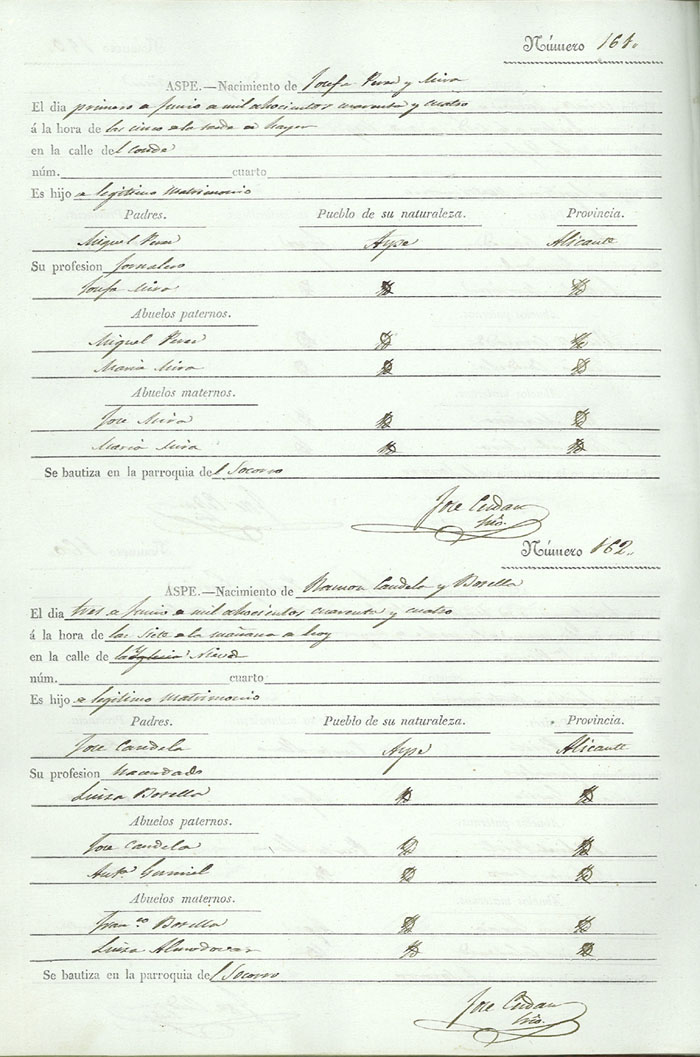 Número 161.
ASPE.—Nacimiento de Josefa Perez y Mira
El dia primero de Junio de mil ochocientos cuarenta y cuatro
á la hora de las cinco de la tarde de hayer
en la calle del Conde
núm. cuarto
Es hijo de legitimo matrimonio
Padres. Pueblo de su naturaleza. Provincia.
Miguel Perez Aspe Alicante
Su profesion Jornalero
Josefa Mira
Abuelos paternos.
Miguel Perez
Maria Mira
Abuelos maternos.
Jose Mira
Maria Mira
Se bautiza en la parroquia del Socorro
Jose Cerdan
Número 162.
ASPE.—Nacimiento de Ramon Candela y Botella
El dia tres de Junio de mil ochocientos cuarenta y cuatro
á la hora de las siete de la mañana de hoy
en la calle de
núm. cuarto
Es hijo de legitimo matrimonio
Padres. Pueblo de su naturaleza. Provincia.
Jose Candela Aspe Alicante
Su profesion hacendado
Luisa Botella
Abuelos paternos.
Jose Candela
Antª
Abuelos maternos.
Franco Botella
Luisa Almodovar
Se bautiza en la parroquia del Socorro
Jose Cerdan